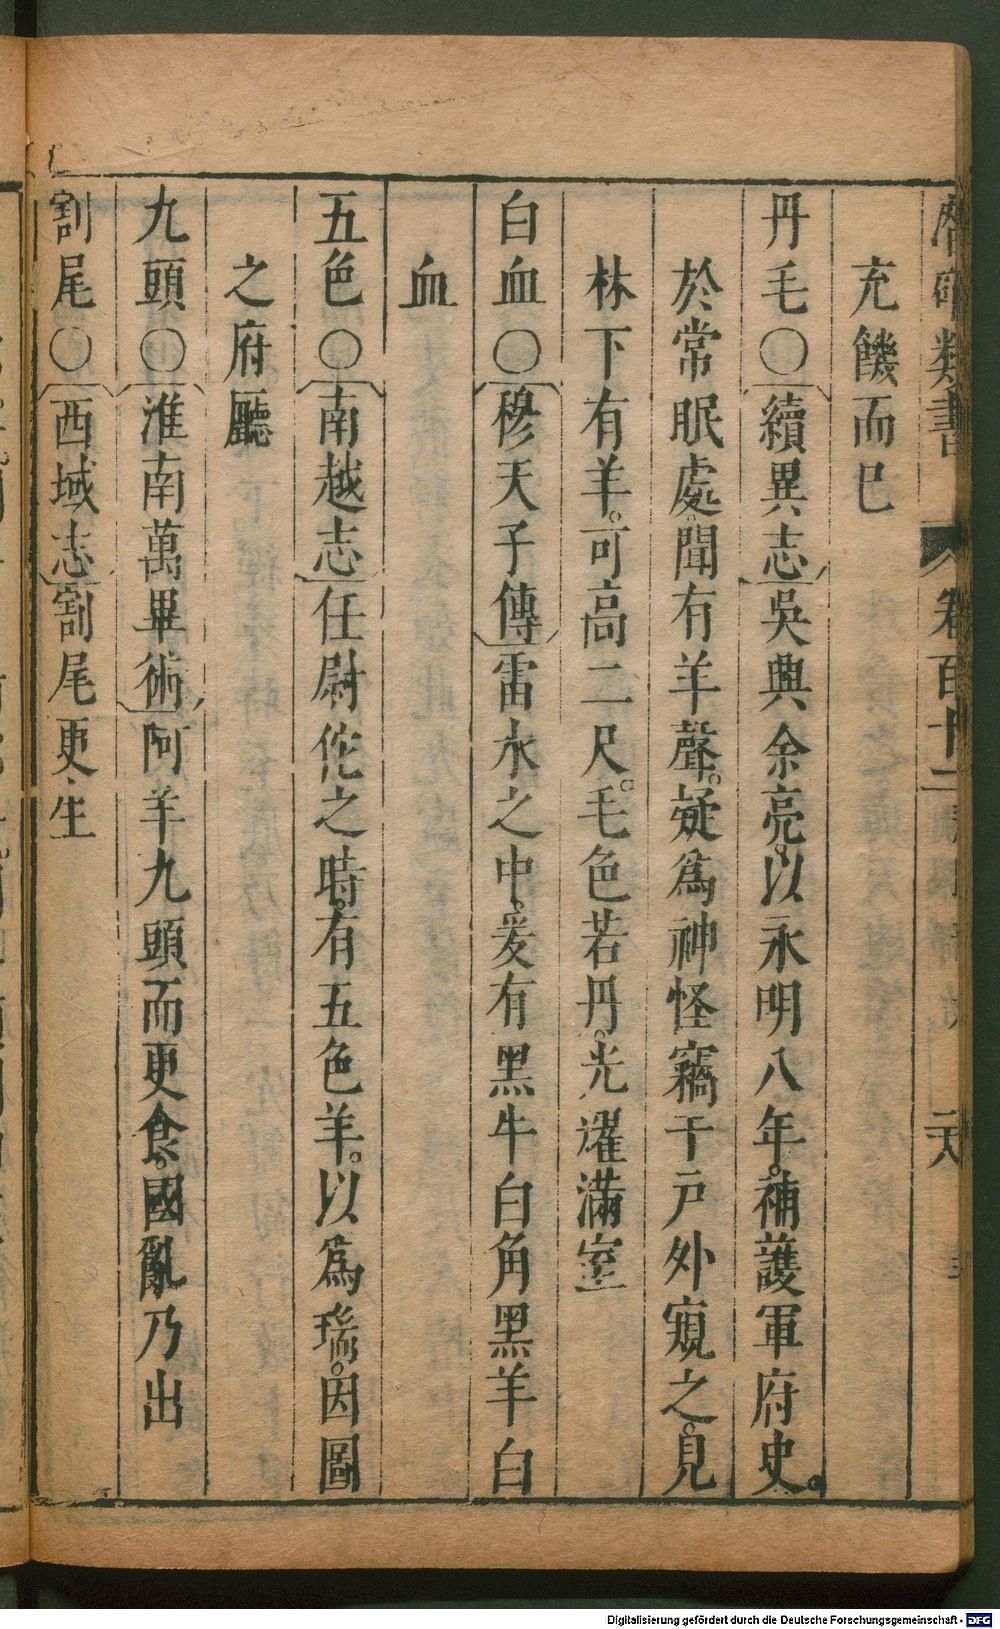 唐類書 卷百十二 二八
充饑而已
丹毛○續異志吳興余亮以永明八年補護軍府史
於常眠處聞有羊聲疑爲神怪竊于戸外窺之見
林下有羊可高二尺毛色若丹光耀滿室
白血○穆天子傳雷水之中爰有黑牛白角黑羊白
血
五色○南越志任尉佗之時有五色羊以爲瑞因圖
之府廳
九頭○淮南萬畢術阿羊九頭而更食國亂乃出
割尾○西域志割尾更生
Digitalisierung gefördert durch die Deutsche Forschungsgemeinschaft - DFG